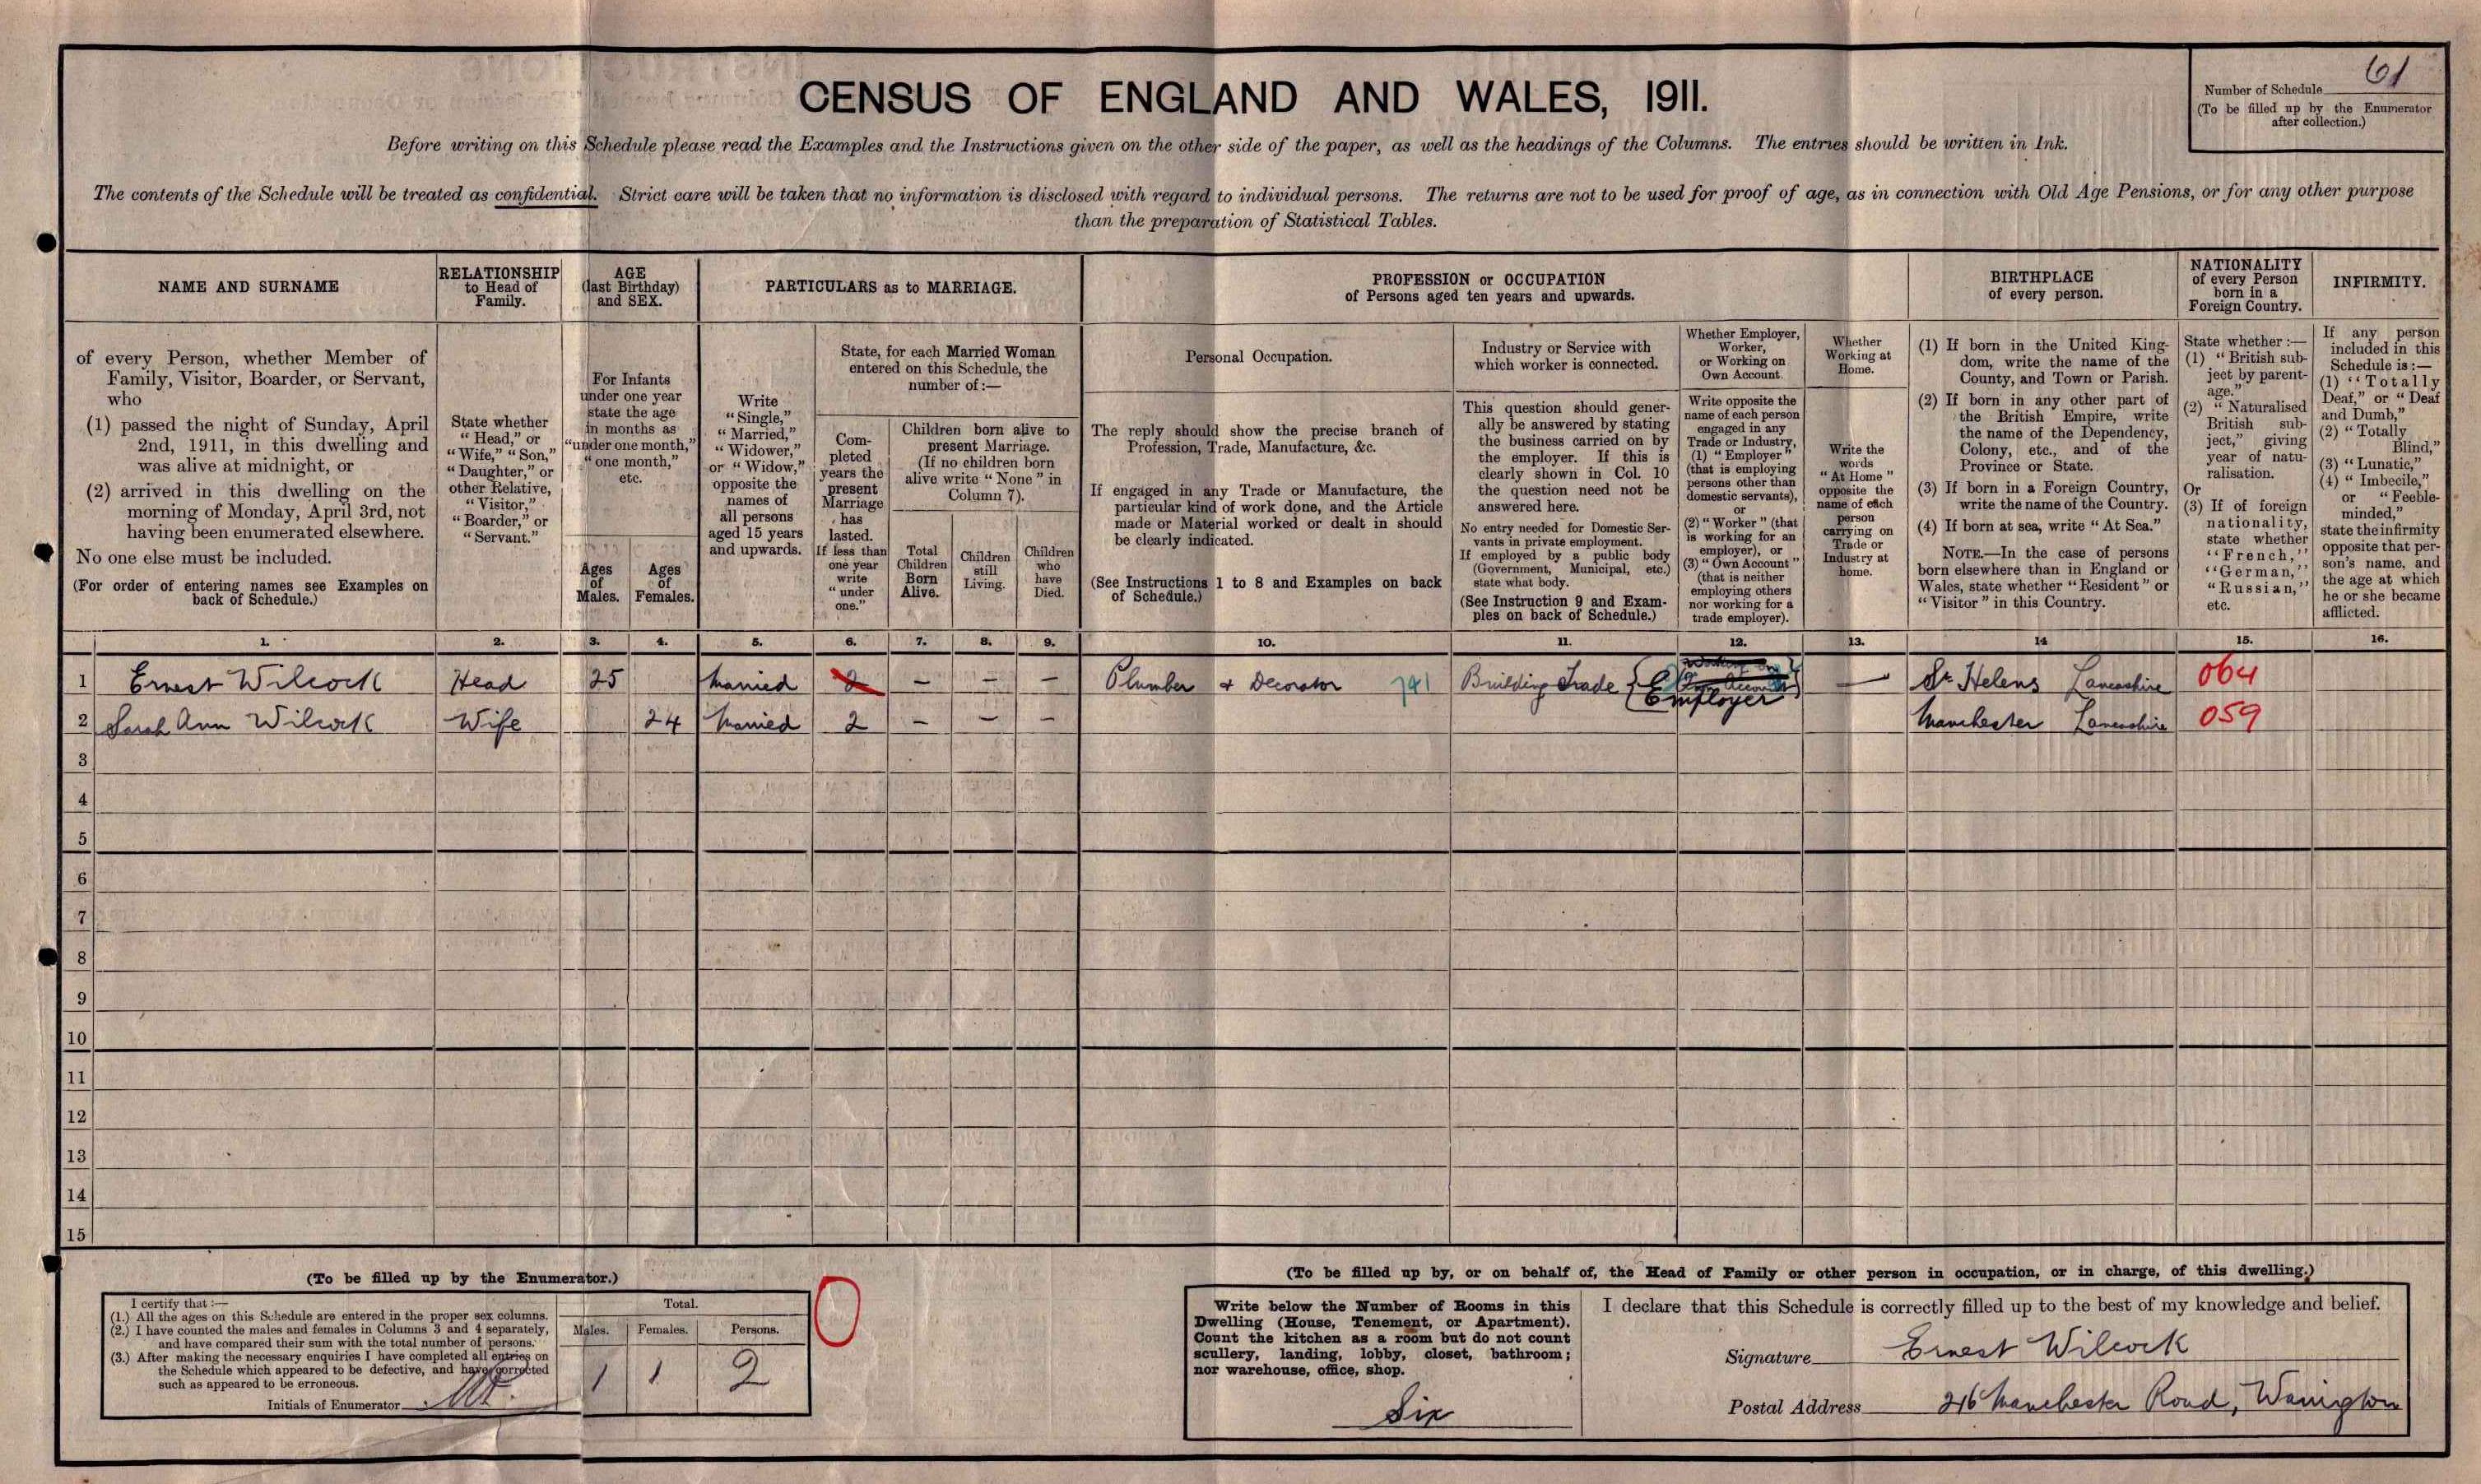 CENSUS OF ENGLAND AND WALES, 1911.
Number of Schedule 61
(To be filled up by the Enumerator
after collection.)
Before writing on this Schedule please read the Examples and the Instructions given on the other side of the paper, as well as the headings of the Columns. The entries should be written in Ink.
The contents of the Schedule will be treated as confidential. Strict care will be taken that no information is disclosed with regard to individual persons. The returns are not to be used for proof of age, as in connection with Old Age Pensions, or for any other purpose
than the preparation of Statistical Tables.
NAME AND SURNAME
of every Person, whether Member of
Family, Visitor, Boarder, or Servant,
who
(1) passed the night of Sunday, April
2nd, 1911, in this dwelling and
was alive at midnight, or
(2) arrived in this dwelling on the
morning of Monday, April 3rd, not
having been enumerated elsewhere.
No one else must be included.
(For order of entering names see Examples on
back of Schedule.)
RELATIONSHIP
to Head of
Family.
State whether
"Head," or
"Wife," "Son,"
"Daughter," or
other Relative,
"Visitor,"
"Boarder," or
"Servant."
AGE
(last Birthday)
and SEX.
For Infants
under one year
state the age
in months as
"under one month,"
"one month,"
etc.
Ages
of
Males.
Ages
of
Females.
PARTICULARS as to MARRIAGE.
Write
"Single,"
"Married,"
"Widower,"
or "Widow,"
opposite the
names of
all persons
aged 15 years
and upwards.
State, for each Married Woman
entered on this Schedule, the
number of:—
Com-
pleted
years the
present
Marriage
has
lasted.
If less than
one year
write
"under
one."
Children born alive to
present Marriage.
(If no children born
alive write "None" in
Column 7).
Total
Children
Born
Alive.
Children
still
Living.
Children
who
have
Died.
PROFESSION or OCCUPATION
of Persons aged ten years and upwards.
Personal Occupation.
The reply should show the precise branch of
Profession, Trade, Manufacture, &c.
If engaged in any Trade or Manufacture, the
particular kind of work done, and the Article
made or Material worked or dealt in should
be clearly indicated.
(See Instructions 1 to 8 and Examples on back
of Schedule.)
Industry or Service with
which worker is connected.
This question should gener-
ally be answered by stating
the business carried on by
the employer. If this is
clearly shown in Col. 10
the question need not be
answered here.
No entry needed for Domestic Ser-
vants in private employment.
If employed by a public body
(Government, Municipal, etc.)
state what body.
(See Instruction 9 and Exam-
ples on back of Schedule.)
Whether Employer,
Worker,
or Working on
Own Account.
Write opposite the
name of each person
engaged in any
Trade or Industry,
(1) "Employer"
(that is employing
persons other than
domestic servants),
or
(2) "Worker" (that
is working for an
employer), or
(3) "Own Account"
(that is neither
employing others
nor working for a
trade employer).
Whether
Working at
Home.
Write the
words
"At Home"
opposite the
name of each
person
carrying on
Trade or
Industry at
home.
BIRTHPLACE
of every person.
(1) If born in the United King-
dom, write the name of the
County, and Town or Parish.
(2) If born in any other part of
the British Empire, write
the name of the Dependency,
Colony, etc., and of the
Province or State.
(3) If born in a Foreign Country,
write the name of the Country.
(4) If born at sea, write "At Sea."
NOTE.—In the case of persons
born elsewhere than in England or
Wales, state whether "Resident" or
"Visitor" in this Country.
NATIONALITY
of every Person
born in a
Foreign Country.
State whether:—
(1) "British sub-
ject by parent-
age."
(2) "Naturalised
British sub-
ject," giving
year of natu-
ralisation.
Or
(3) If of foreign
nationality,
state whether
"French,"
"German,"
"Russian,"
etc.
INFIRMITY.
If any person
included in this
Schedule is:—
(1) "Totally
Deaf," or "Deaf
and Dumb,"
(2) "Totally
Blind,"
(3) "Lunatic,"
(4) "Imbecile,"
or "Feeble-
minded,"
state the infirmity
opposite that per-
son's name, and
the age at which
he or she became
afflicted.
1. 2. 3. 4. 5. 6. 7. 8. 9. 10. 11. 12. 13. 14 15. 16.
1 Ernest Wilcock Head 25 Married 2 – – – Plumber & Decorator 741 Building Trade Working on Own Account Employer — St. Helens Lancashire 064
2 Sarah Ann Wilcock Wife 24 Married 2 – – – Manchester Lancashire 059
3
4
5
6
7
8
9
10
11
12
13
14
15
(To be filled up by the Enumerator.)
I certify that:—
(1.) All the ages on this Schedule are entered in the proper sex columns.
(2.) I have counted the males and females in Columns 3 and 4 separately,
and have compared their sum with the total number of persons.
(3.) After making the necessary enquiries I have completed all entries on
the Schedule which appeared to be defective, and have corrected
such as appeared to be erroneous.
Initials of Enumerator
Total.
Males. Females. Persons.
1 1 2
0
(To be filled up by, or on behalf of, the Head of Family or other person in occupation, or in charge, of this dwelling.)
Write below the Number of Rooms in this
Dwelling (House, Tenement, or Apartment).
Count the kitchen as a room but do not count
scullery, landing, lobby, closet, bathroom;
nor warehouse, office, shop.
Six
I declare that this Schedule is correctly filled up to the best of my knowledge and belief.
Signature Ernest Wilcock
Postal Address 216 Manchester Road, Warrington